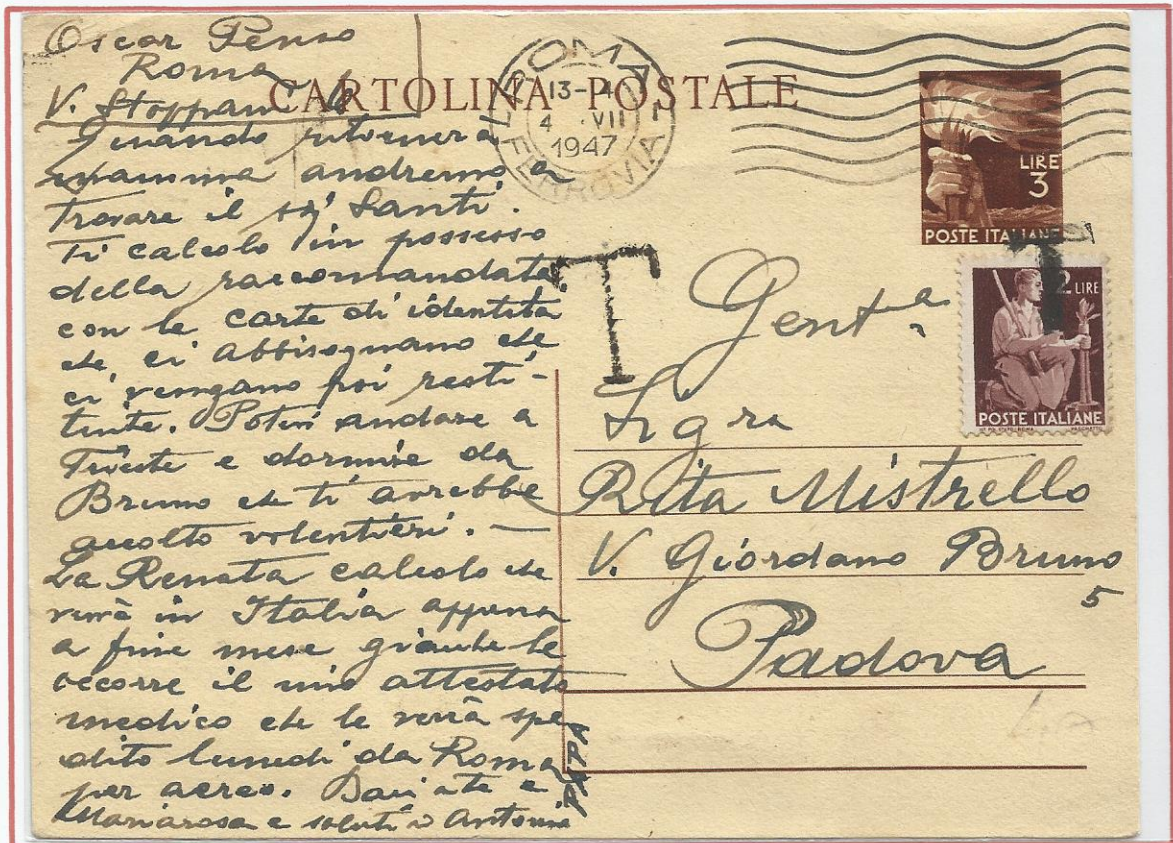 Oscar Penso
Roma
V. Stoppani 6
CARTOLINA POSTALE
ROMA
FERROVIA
13-14
4 VII
1947
LIRE
3
POSTE ITALIANE
2 LIRE
POSTE ITALIANE
T
T
Quando ritornerà
mamma andremo a
trovare il Santi.
Ti calcolo in possesso
della raccomandata
con le carte di identità
che ci abbisognano che
ci vengano poi resti-
tuite. Potevi andare a
Trieste e dormire da
Bruno che ti avrebbe
accolto volentieri. —
La Renata calcolo che
verrà in Italia appena
a fine mese giacchè le
occorre il mio attestato
medico che le verrà spe
dito lunedì da Roma
per aereo. Baci a te e
Mariarosa e saluti a Antonio
PAPA
Gent.a
Sigra
Rita Mistrello
V. Giordano Bruno
5
Padova